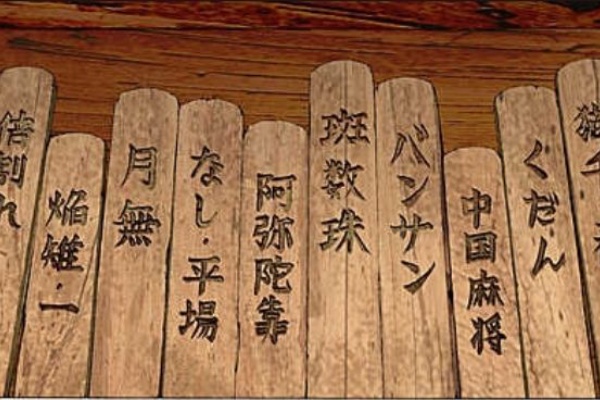 くだん
中国麻将
バンサン
斑数珠
阿弥陀靠
なし・平場
月無
焔雉・一
倍割れ